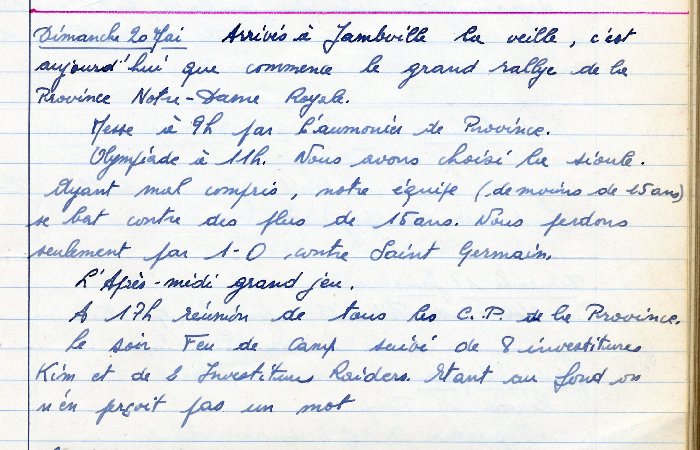 Dimanche 20 Mai Arrivés à Jambville la veille, c'est
aujourd'hui que commence le grand rallye de la
Province Notre-Dame Royale.
Messe à 9h par l'aumonier de Province.
Olympiade à 11h. Nous avons choisi la sioule.
Ayant mal compris, notre équipe (de moins de 15 ans)
se bat contre des plus de 15 ans. Nous perdons
seulement par 1-0 contre Saint Germain.
L'Après-midi grand jeu.
A 17h réunion de tous les C.P. de la Province.
Le soir Feu de Camp suivi de 8 investitures
Kim et de 2 Investitures Raiders. Etant au fond on
n'en perçoit pas un mot